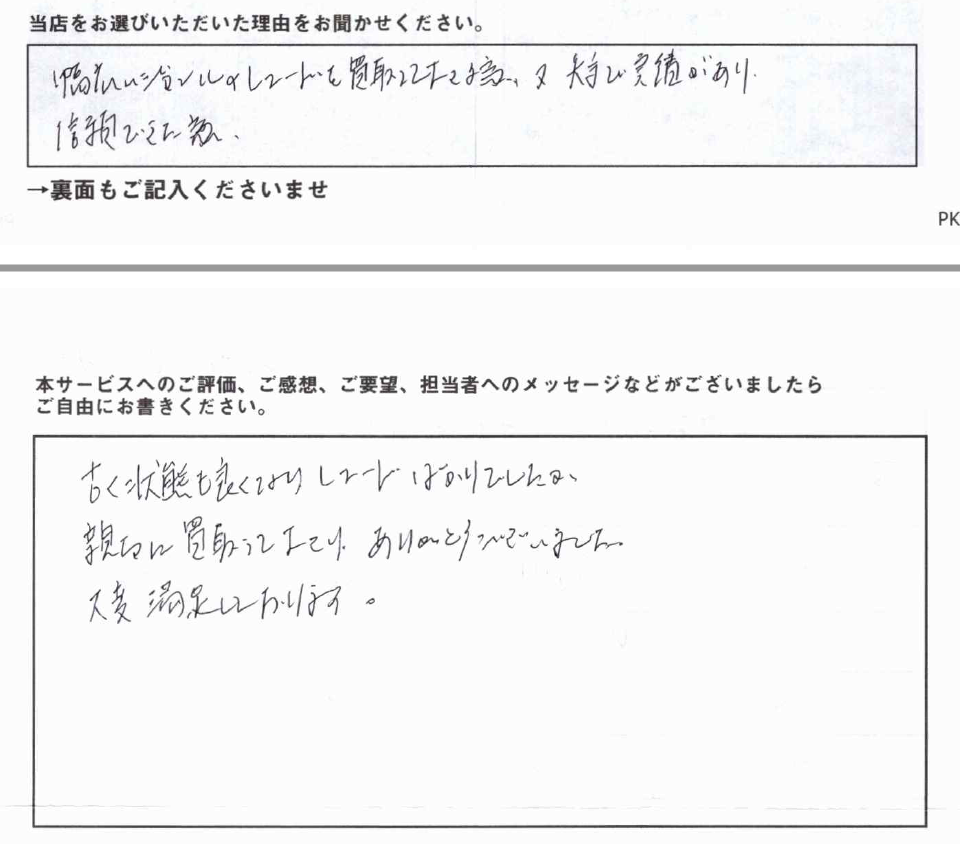 当店をお選びいただいた理由をお聞かせください。
幅広いジャンルのレコードを買取って下さる為、又 大手で実績があり
信頼できた為。
→裏面もご記入くださいませ
PK
本サービスへのご評価、ご感想、ご要望、担当者へのメッセージなどがございましたら
ご自由にお書きください。
古く状態も良くない レコードばかりでしたが、
親切に買取って下さり ありがとうございました。
大変満足しております。